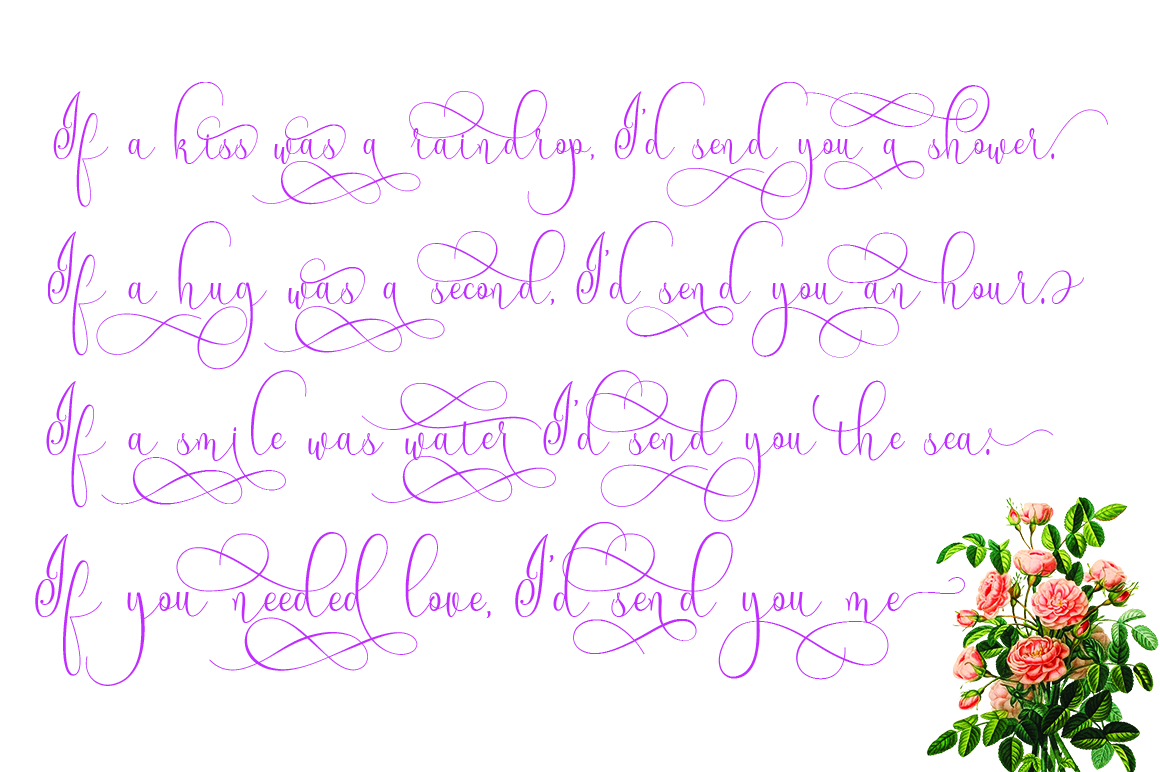 If a kiss was a raindrop, I'd send you a shower.
If a hug was a second, I'd send you an hour.
If a smile was water I'd send you the sea.
If you needed love, I'd send you me